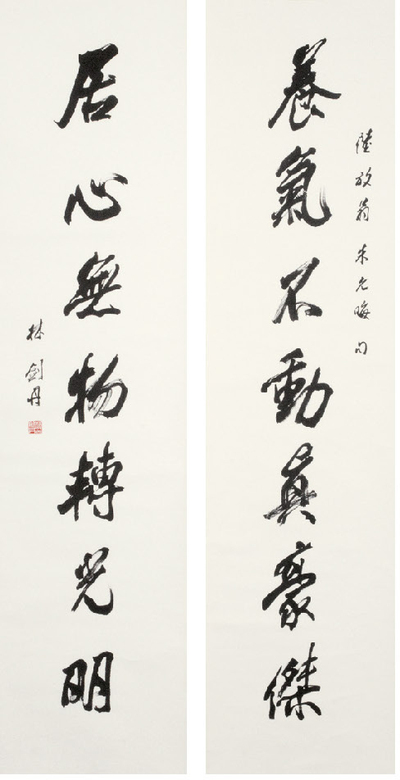 養氣不動真豪傑
陸放翁朱元晦句
居心無物轉光明
林劍丹